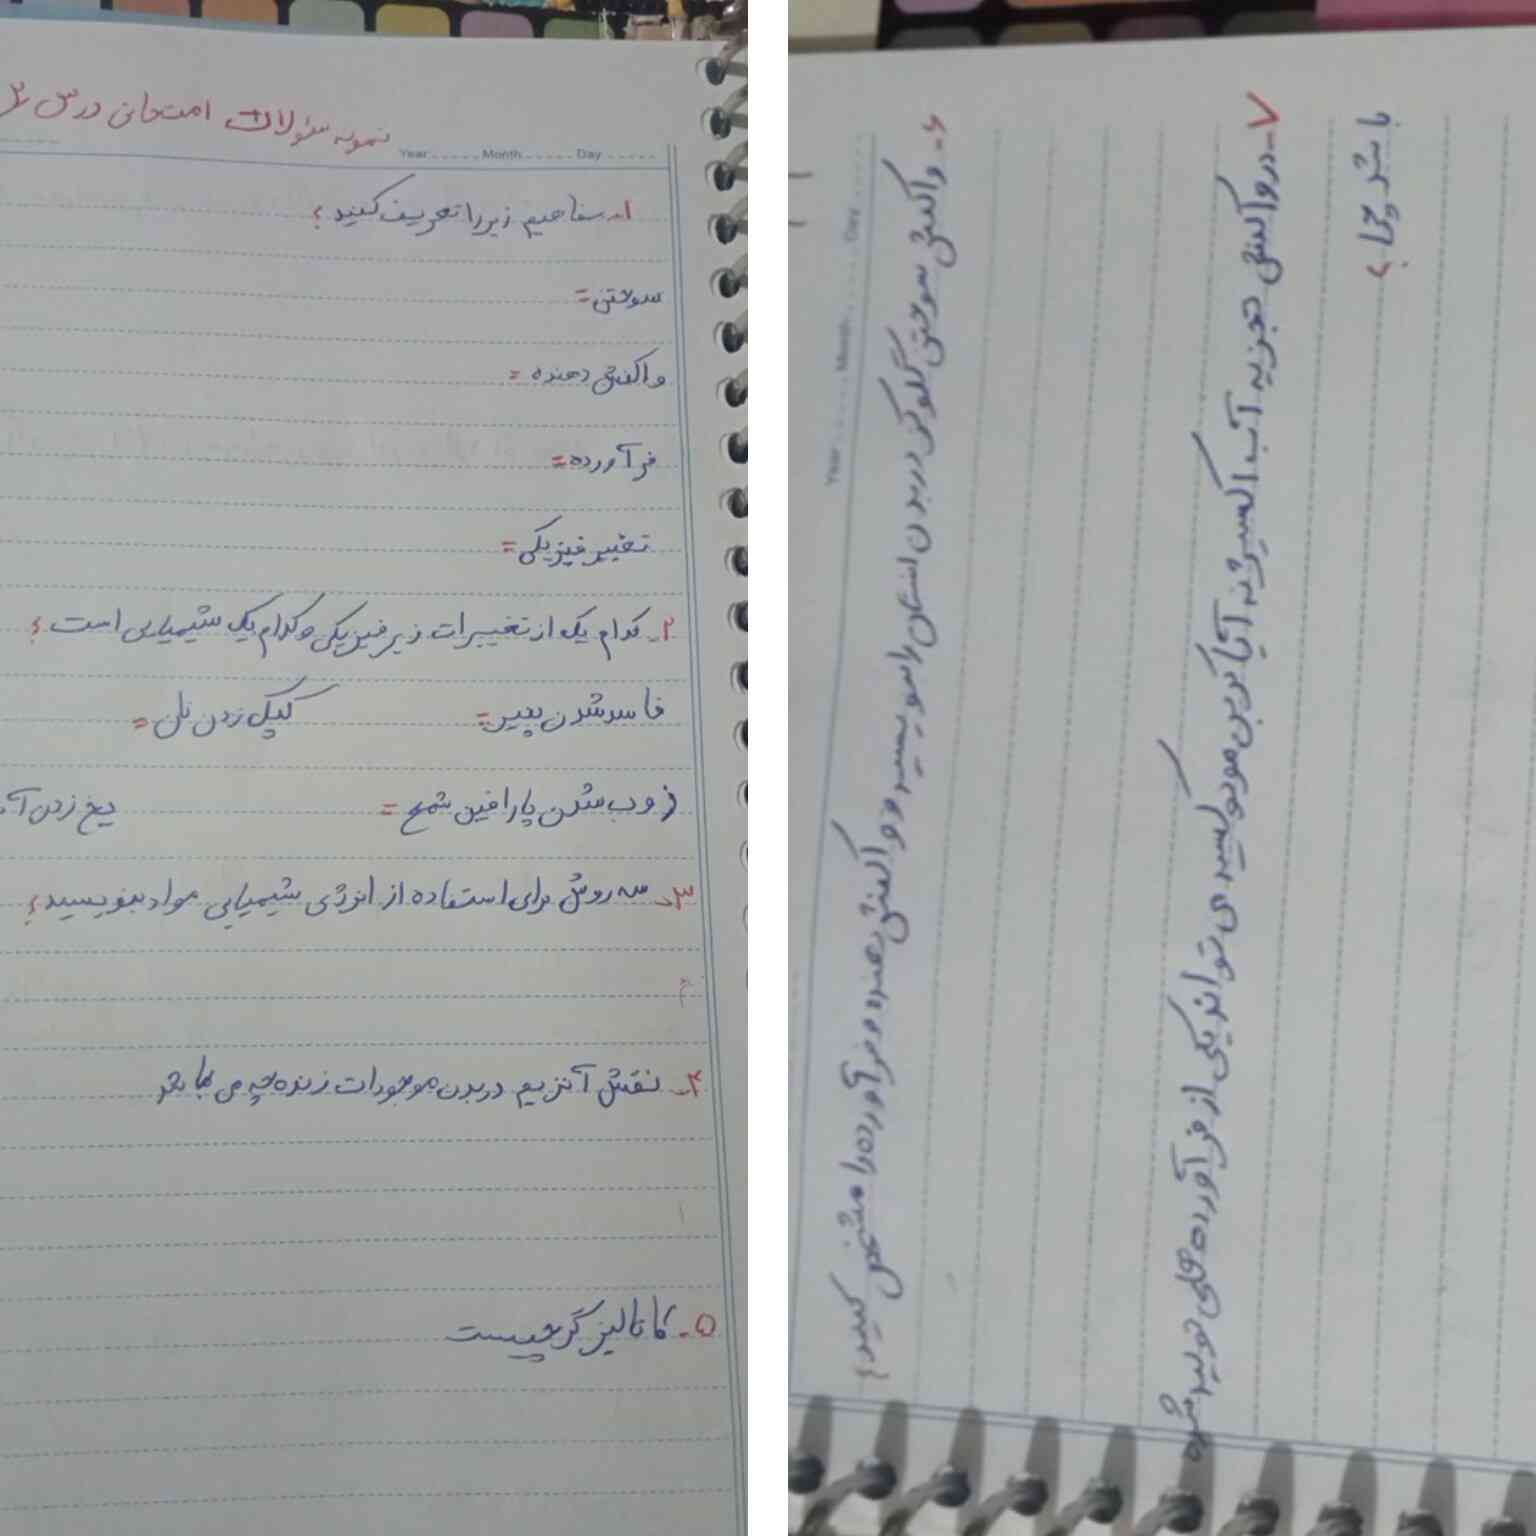 نمونه سئولات امتحانی درس ۲
Year ..... Month ...... Day ......
۱- مفاهیم زیر را تعریف کنید؟
سوختن =
واکنش دهنده =
فرآورده =
تغییر فیزیکی =
۲- کدام یک از تغییرات زیر فیزیکی و کدام یک شیمیایی است؟
فاسد شدن پنیر = کپک زدن نان =
ذوب شدن پارافین شمع = یخ زدن آ
۳- سه روش برای استفاده از انرژی شیمیایی مواد بنویسید؟
۴- نقش آنزیم در بدن موجودات زنده چه می باشد
۵- کاتالیزگر چیست
Year ..... Month ..... Day .....
۶- واکنش سوختن گلوکز در بدن انسان را بنویسید و واکنش دهنده و فرآورده را مشخص کنید؟
۷- در واکنش تجزیه آب اکسیژنه آیا کربن مونوکسید می تواند یکی از فرآورده های تولید شده
باشد چرا؟